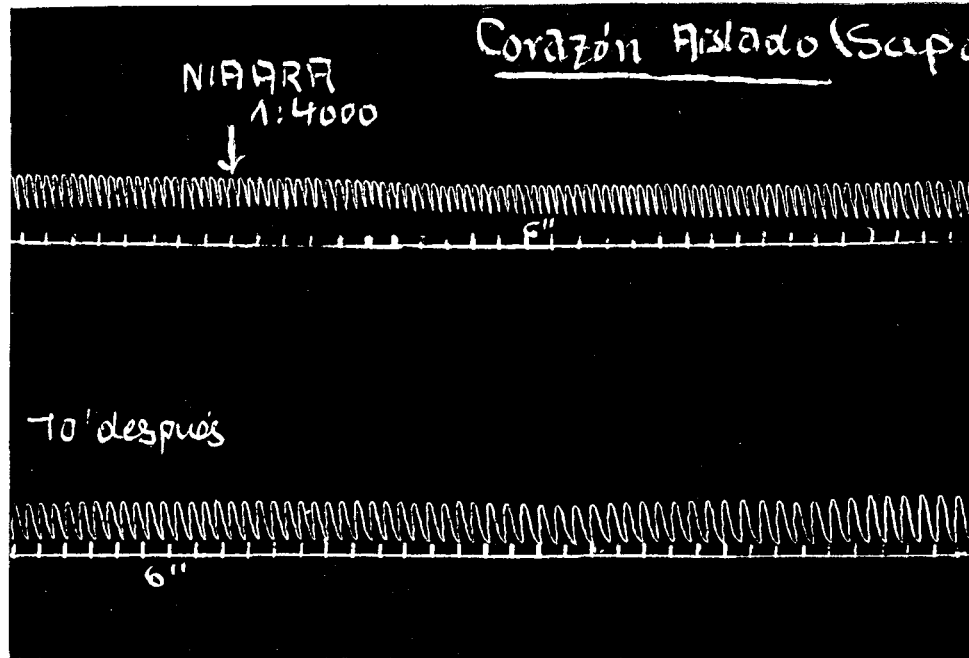 Corazón Aislado (Sapo
NIAARA
1:4000
6"
10' después
6"